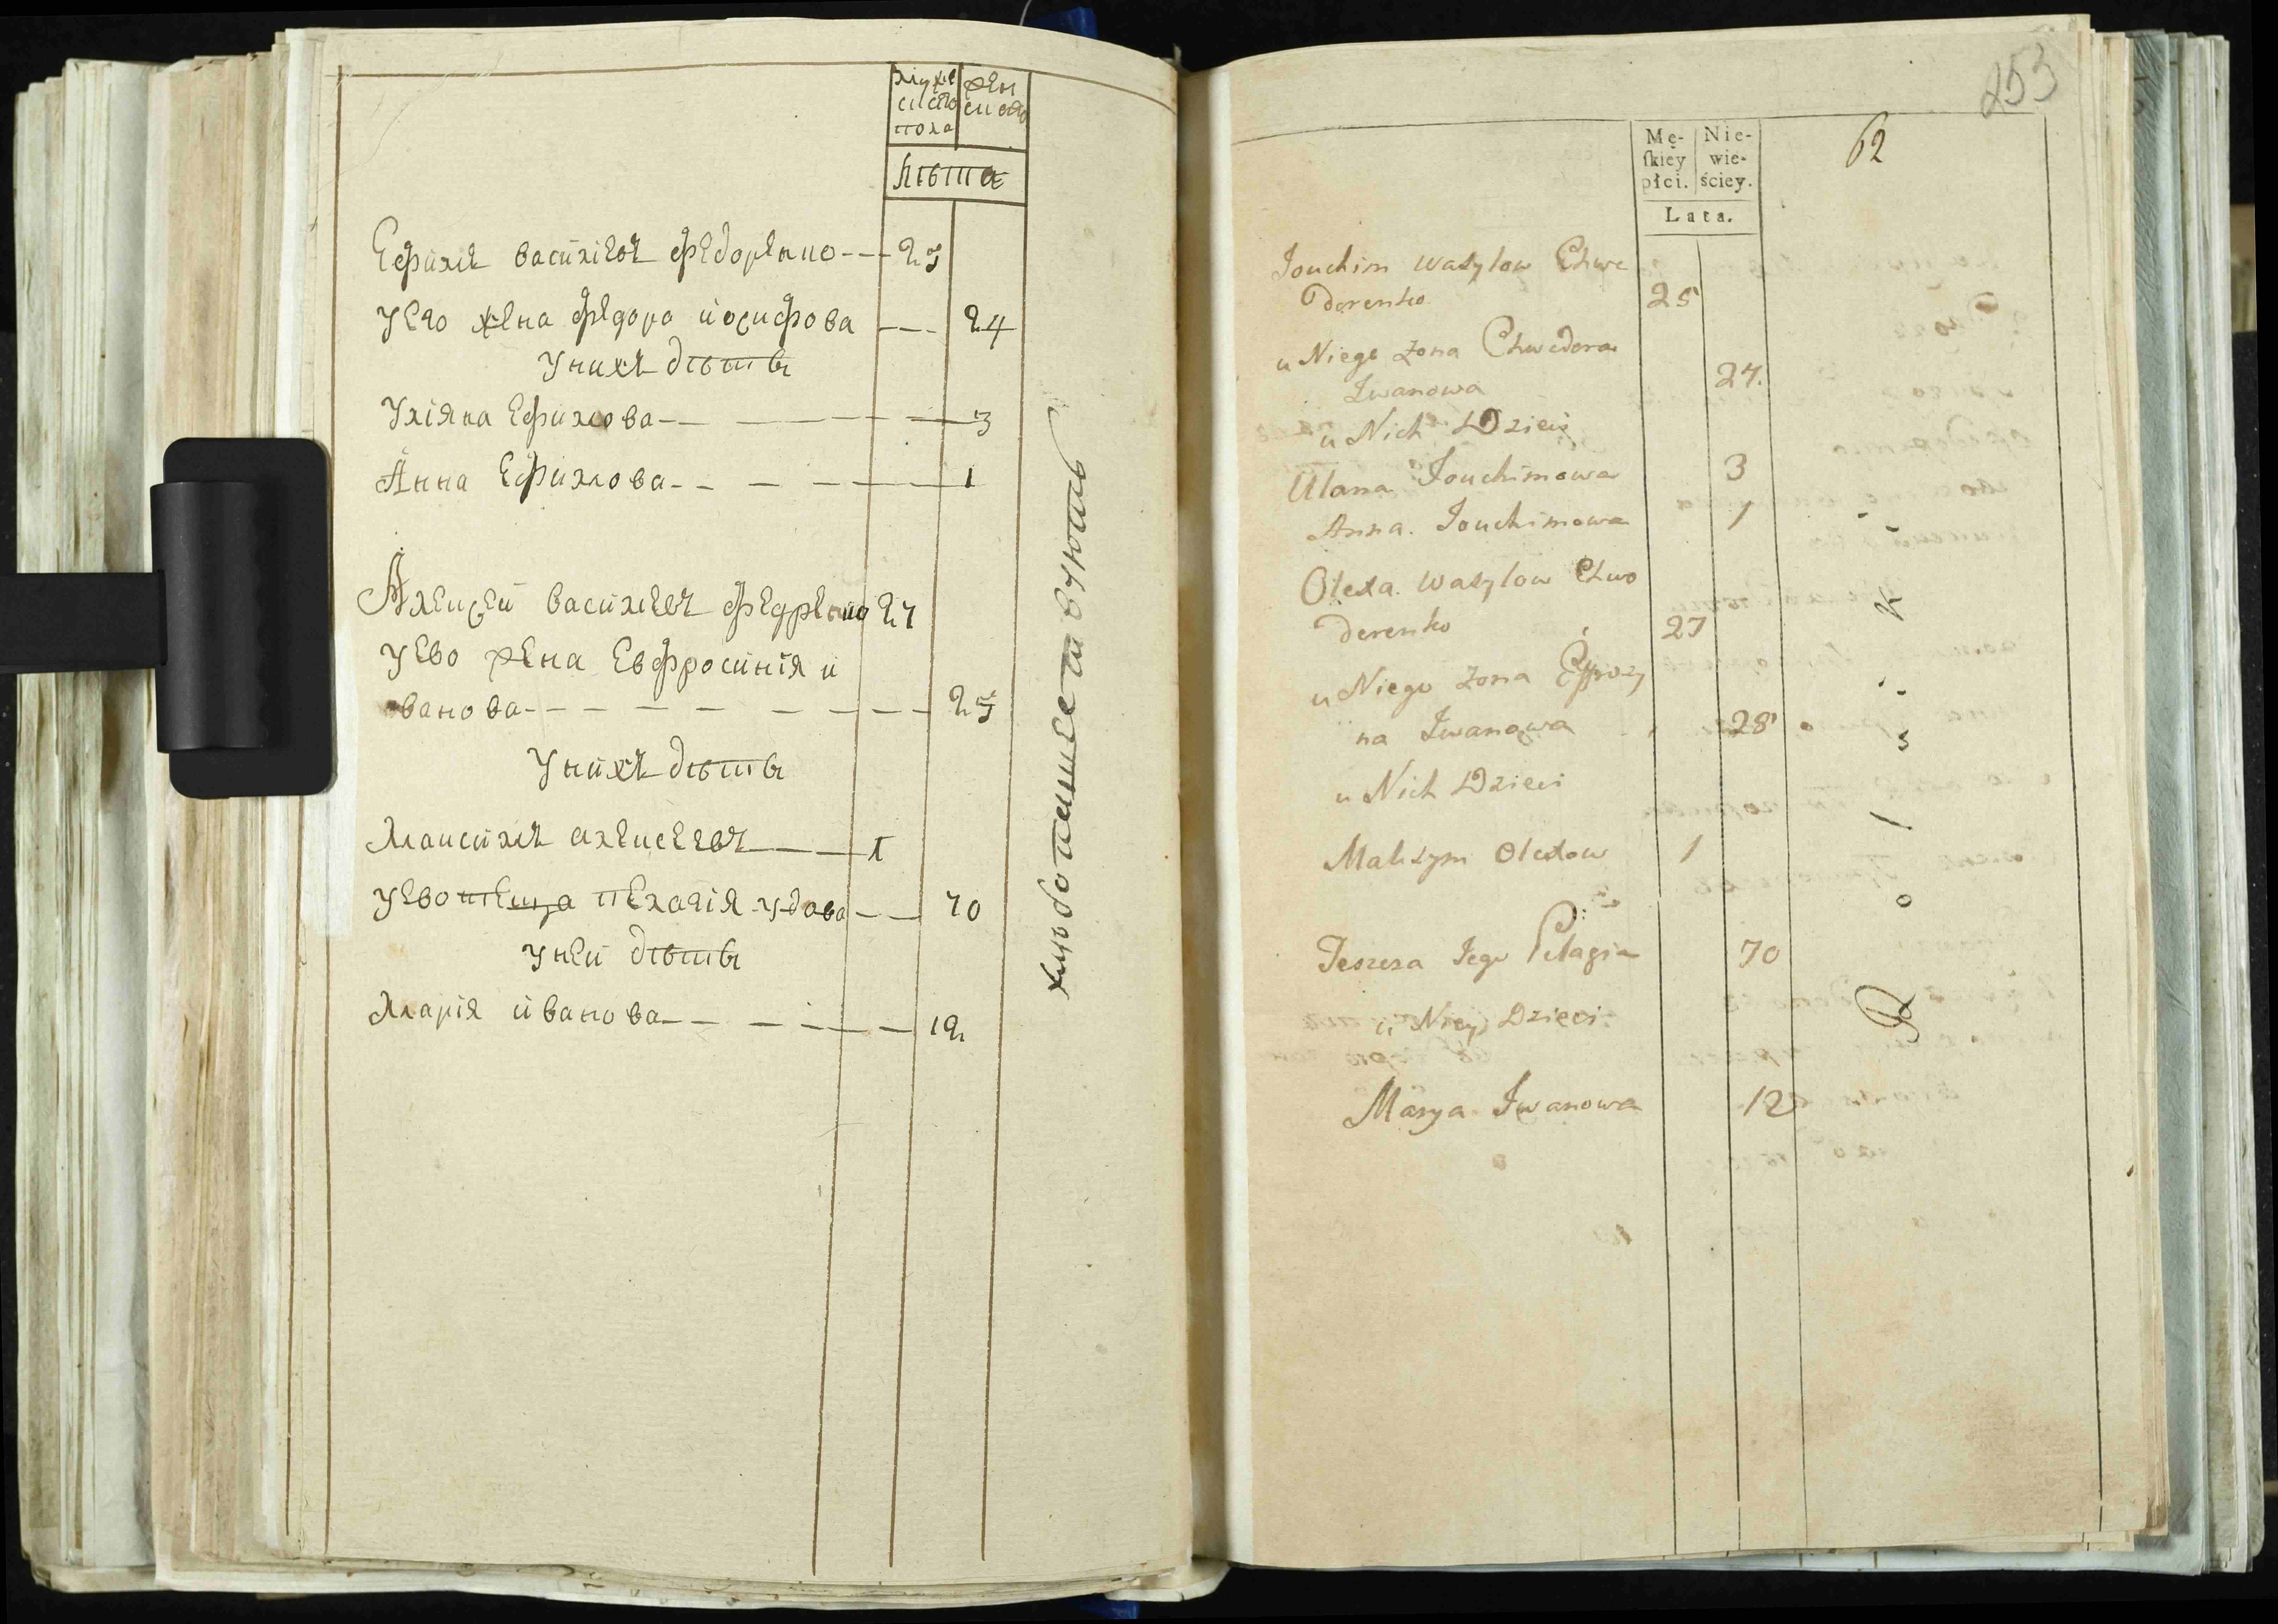 мужеска пола
женска
лѣта
Ефимъ василіевъ федоренко 25
У его жена федора иосифова 24
У нихъ дѣти
Уліяна Ефимова 3
Анна Ефимова 1
Алексей василіевъ федренко 27
У ево жена Евфросинія и
ванова 25
У нихъ дѣти
Максимъ алексеевъ 1
У ево теща пелагія удова 70
У ней дѣти
Марія иванова 12
хлѣбопашествуютъ
253
62
Mę-
skiey
płci.
Nie-
wie-
ściey.
Lata.
Jouchim Wasylow Chwe
dorenko 25
u Niego Zona Chwedora
Iwanowa 24.
u Nich Dzieci
Ulana Jouchimowa 3
Anna. Jouchimowa 1
Olexa. Wasylow Chwo
derenko 27
u Niego Zona Effrozy
na Iwanowa 28
u Nich Dzieci
Makzym Olexow 1
Teszcza Jego Pelagia 70
u Niey Dzieci
Marya Iwanowa 12